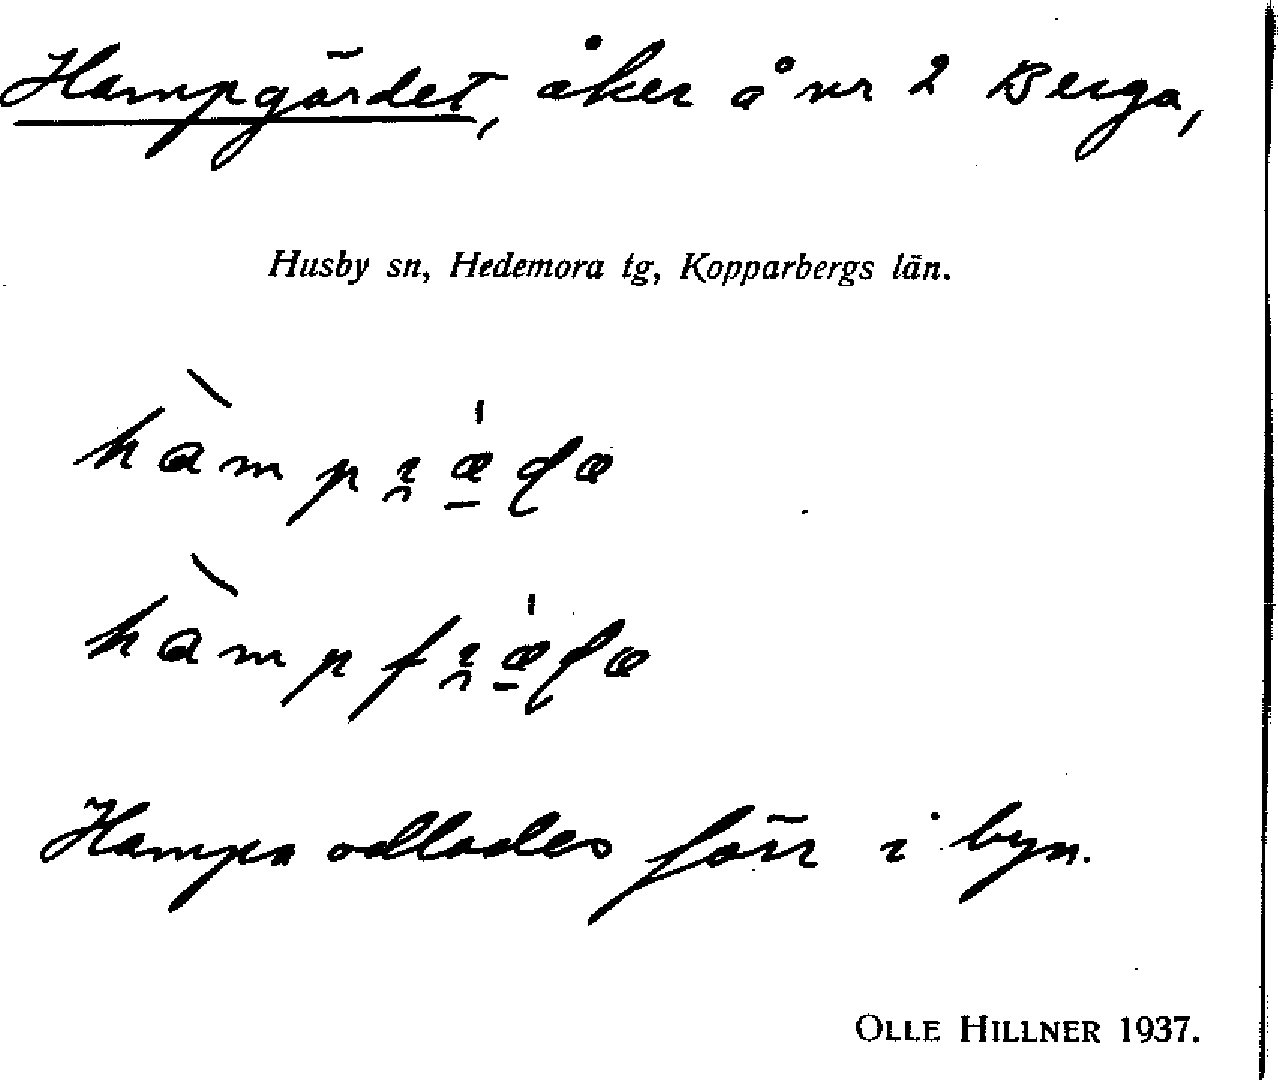 Hampgärdet, åker å nr 2 Berga,
Husby sn, Hedemora tg, Kopparbergs län.
Hampa odlades förr i byn.
OLLE HILLNER 1937.